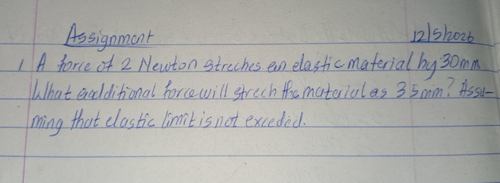 Assignment 12/5/2026
1 A force of 2 Newton streches an elastic material by 30mm
What additional force will strech the material as 35mm? Assu-
ming that elastic limit is not exceded.